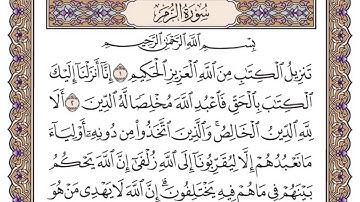 سُورَةُ الزُّمَرِ
بِسْمِ اللَّهِ الرَّحْمَٰنِ الرَّحِيمِ
تَنزِيلُ الْكِتَٰبِ مِنَ اللَّهِ الْعَزِيزِ الْحَكِيمِ ١ إِنَّا أَنزَلْنَا إِلَيْكَ
الْكِتَٰبَ بِالْحَقِّ فَاعْبُدِ اللَّهَ مُخْلِصًا لَّهُ الدِّينَ ٢ أَلَا
لِلَّهِ الدِّينُ الْخَالِصُ ۚ وَالَّذِينَ اتَّخَذُوا مِن دُونِهِ أَوْلِيَاءَ
مَا نَعْبُدُهُمْ إِلَّا لِيُقَرِّبُونَا إِلَى اللَّهِ زُلْفَىٰ إِنَّ اللَّهَ يَحْكُمُ
بَيْنَهُمْ فِي مَا هُمْ فِيهِ يَخْتَلِفُونَ ۗ إِنَّ اللَّهَ لَا يَهْدِي مَنْ هُوَ